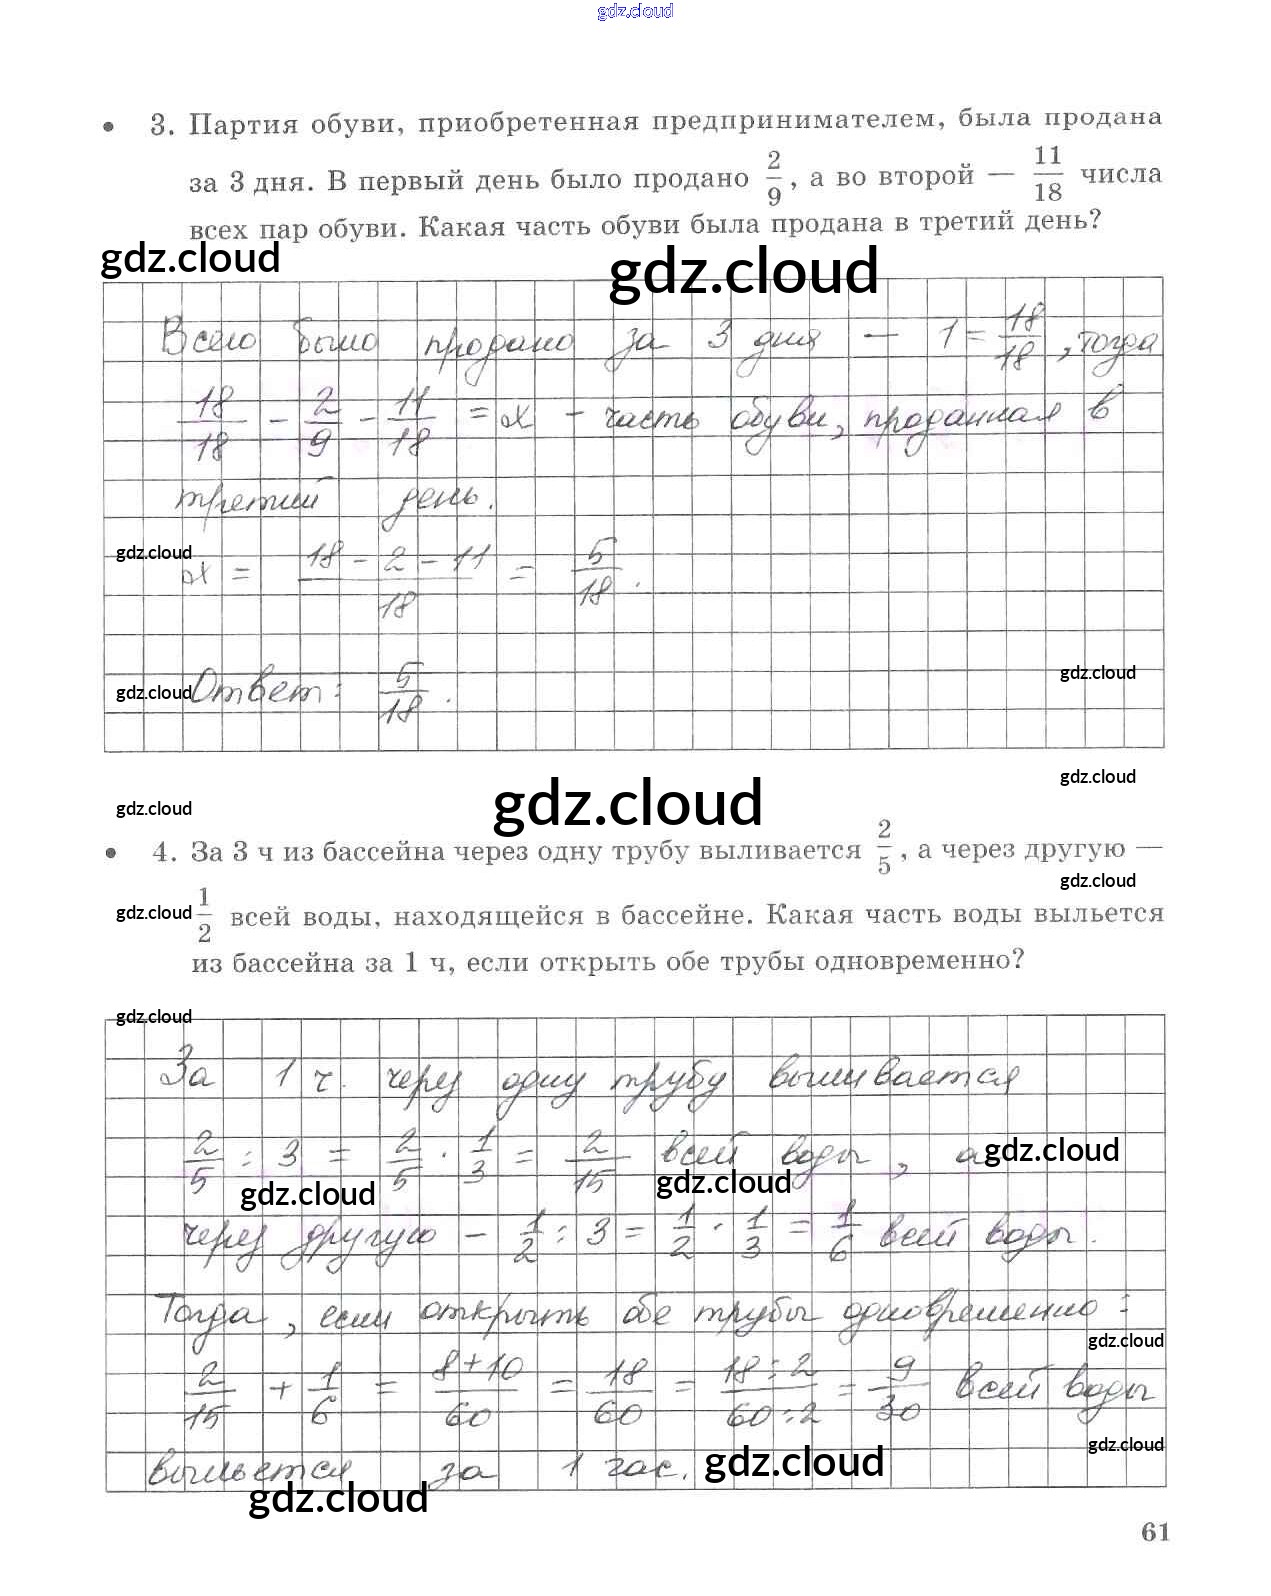 gdz.cloud
• 3. Партия обуви, приобретенная предпринимателем, была продана
за 3 дня. В первый день было продано 2/9, а во второй — 11/18 числа
всех пар обуви. Какая часть обуви была продана в третий день?
gdz.cloud gdz.cloud
Всего было продано за 3 дня — 1 = 18/18, тогда
18/18 - 2/9 - 11/18 = x - часть обуви, проданная в
третий день.
gdz.cloud
x = (18 - 2 - 11)/18 = 5/18.
gdz.cloud
gdz.cloud Ответ: 5/18.
gdz.cloud
gdz.cloud gdz.cloud
• 4. За 3 ч из бассейна через одну трубу выливается 2/5, а через другую —
gdz.cloud
gdz.cloud 1/2 всей воды, находящейся в бассейне. Какая часть воды выльется
из бассейна за 1 ч, если открыть обе трубы одновременно?
gdz.cloud
За 1 ч. через одну трубу выливается
2/5 : 3 = 2/5 · 1/3 = 2/15 всей воды, а gdz.cloud
gdz.cloud gdz.cloud
через другую - 1/2 : 3 = 1/2 · 1/3 = 1/6 всей воды.
Тогда, если открыть обе трубы одновременно:
gdz.cloud
2/15 + 1/6 = (8+10)/60 = 18/60 = (18:2)/(60:2) = 9/30 всей воды
gdz.cloud
выльется за 1 час. gdz.cloud
gdz.cloud
61